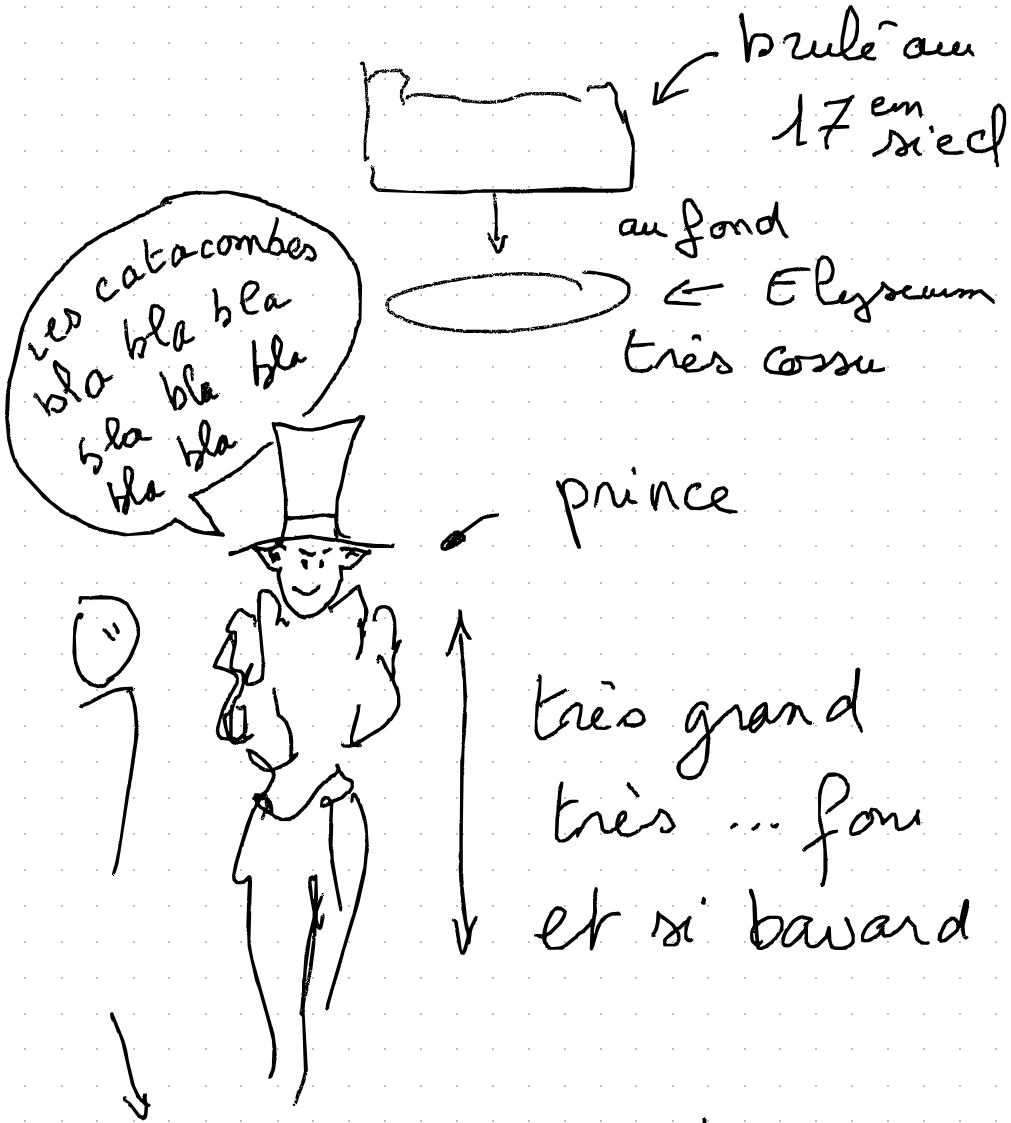 brulé au
17 em
siecl
au fond
Elyseum
très cossu
Les catacombes
bla bla bla
bla bla
bla bla
bla
prince
très grand
très ... fou
et si bavard